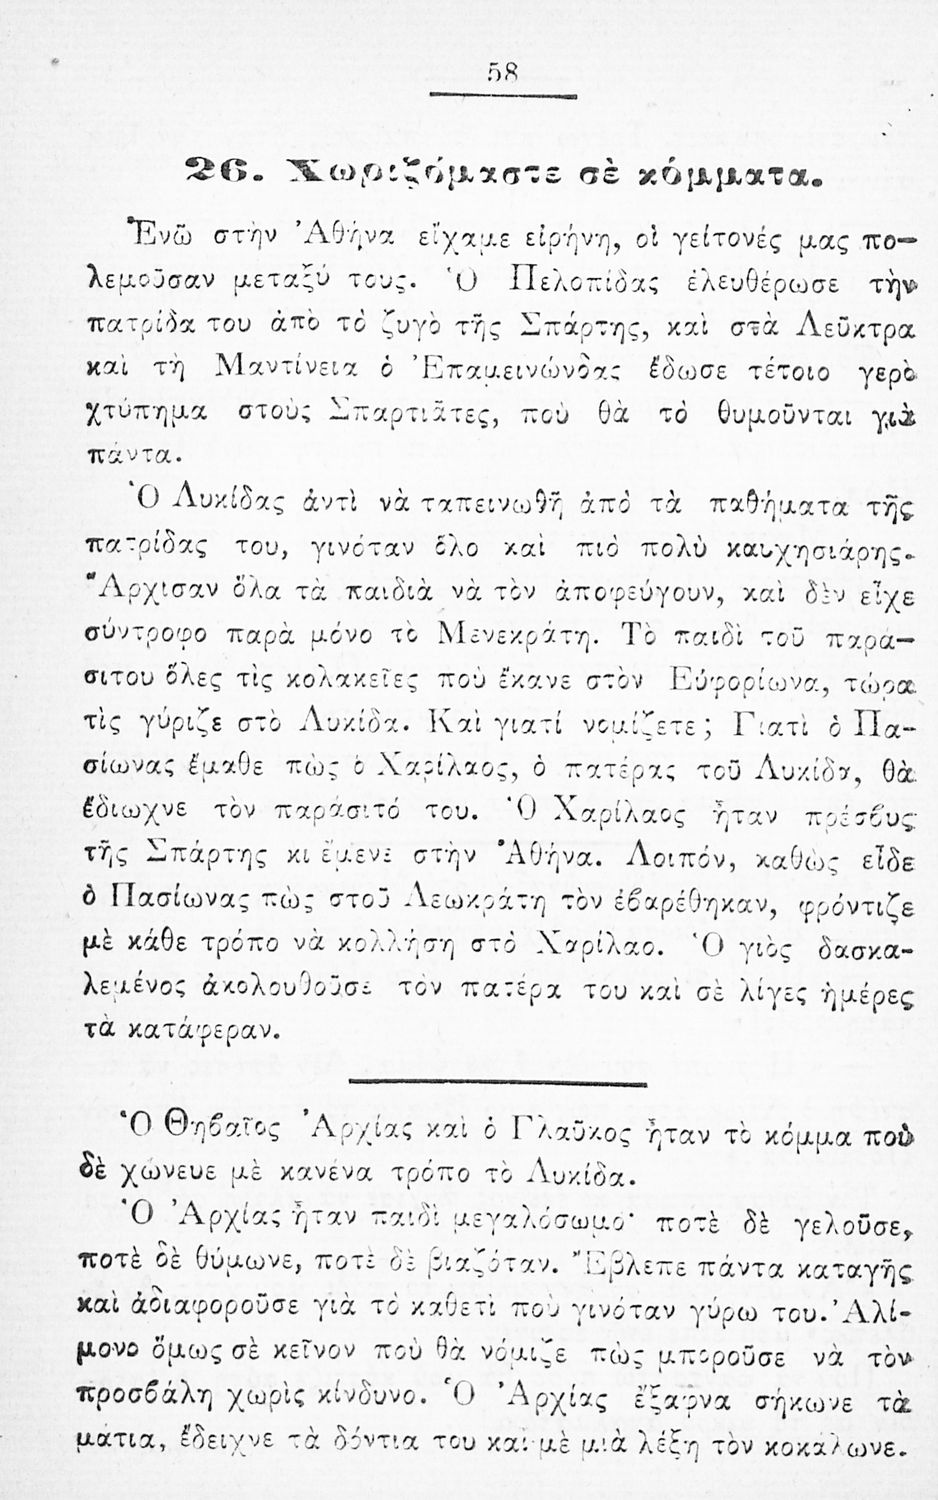 58
26. Χωριζόμαστε σὲ κόμματα.
Ἐνῶ στὴν Ἀθήνα εἴχαμε εἰρήνη, οἱ γείτονές μας πο—
λεμοῦσαν μεταξύ τους. Ὁ Πελοπίδας ἐλευθέρωσε τὴν
πατρίδα του ἀπὸ τὸ ζυγὸ τῆς Σπάρτης, καὶ στὰ Λεῦκτρα
καὶ τὴ Μαντίνεια ὁ Ἐπαμεινώνδας ἔδωσε τέτοιο γερὸ
χτύπημα στοὺς Σπαρτιᾶτες, ποὺ θὰ τὸ θυμοῦνται γιὰ
πάντα.
Ὁ Λυκίδας ἀντὶ νὰ ταπεινωθῆ ἀπὸ τὰ παθήματα τῆς
πατρίδας του, γινόταν ὅλο καὶ πιὸ πολὺ καυχησιάρης.
Ἄρχισαν ὅλα τὰ παιδιὰ νὰ τὸν ἀποφεύγουν, καὶ δὲν εἶχε
σύντροφο παρὰ μόνο τὸ Μενεκράτη. Τὸ παιδὶ τοῦ παρά—
σιτου ὅλες τὶς κολακεῖες ποὺ ἔκανε στὸν Εὐφορίωνα, τώρα
τὶς γύριζε στὸ Λυκίδα. Καὶ γιατί νομίζετε; Γιατὶ ὁ Πα-
σίωνας ἔμαθε πὼς ὁ Χαρίλαος, ὁ πατέρας τοῦ Λυκίδα, θὰ
ἔδιωχνε τὸν παράσιτό του. Ὁ Χαρίλαος ἦταν πρέσϐυς
τῆς Σπάρτης κι ἔμενε στὴν Ἀθήνα. Λοιπόν, καθὼς εἶδε
ὁ Πασίωνας πὼς στοῦ Λεωκράτη τὸν ἐϐαρέθηκαν, φρόντιζε
μὲ κάθε τρόπο νὰ κολλήση στὸ Χαρίλαο. Ὁ γιὸς δασκα-
λεμένος ἀκολουθοῦσε τὸν πατέρα του καὶ σὲ λίγες ἡμέρες
τὰ κατάφεραν.
Ὁ Θηϐαῖος Ἀρχίας καὶ ὁ Γλαῦκος ἦταν τὸ κόμμα ποὺ
δὲ χώνευε μὲ κανένα τρόπο τὸ Λυκίδα.
Ὁ Ἀρχίας ἦταν παιδὶ μεγαλόσωμο· ποτὲ δὲ γελοῦσε,
ποτὲ δὲ θύμωνε, ποτὲ δὲ βιαζόταν. Ἔβλεπε πάντα καταγῆς
καὶ ἀδιαφοροῦσε γιὰ τὸ καθετὶ ποὺ γινόταν γύρω του. Ἀλί-
μονο ὅμως σὲ κεῖνον ποὺ θὰ νόμιζε πὼς μποροῦσε νὰ τὸν
προσϐάλη χωρὶς κίνδυνο. Ὁ Ἀρχίας ἔξαφνα σήκωνε τὰ
μάτια, ἔδειχνε τὰ δόντια του καὶ μὲ μιὰ λέξη τὸν κοκάλωνε.